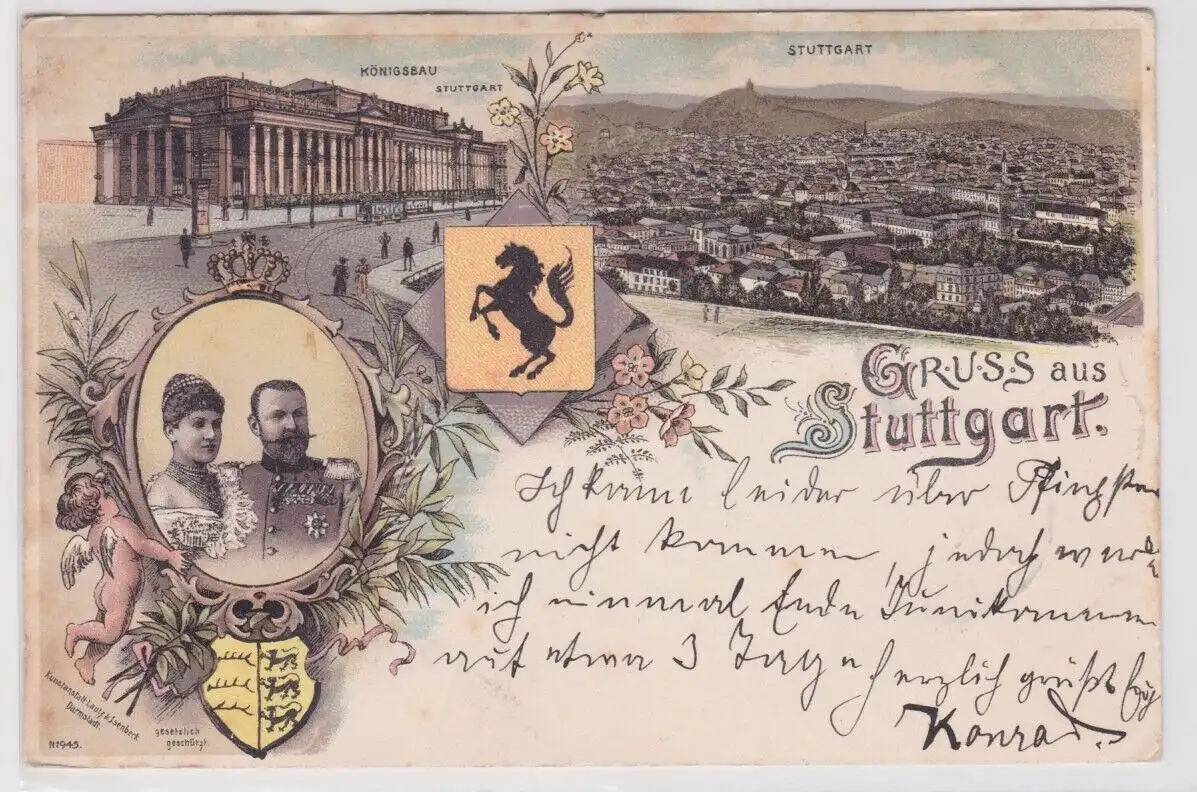 KÖNIGSBAU
STUTTGART
STUTTGART
GRUSS aus
Stuttgart.
Ich kann leider über Pfingsten
nicht kommen, jedoch werde
ich einmal Ende Juni kommen
auf etwa 3 Tage
herzlich grüßt Euch
Konrad.
Kunstanstalt Lautz & Isenbeck
Darmstadt.
gesetzlich
geschützt.
No 945.